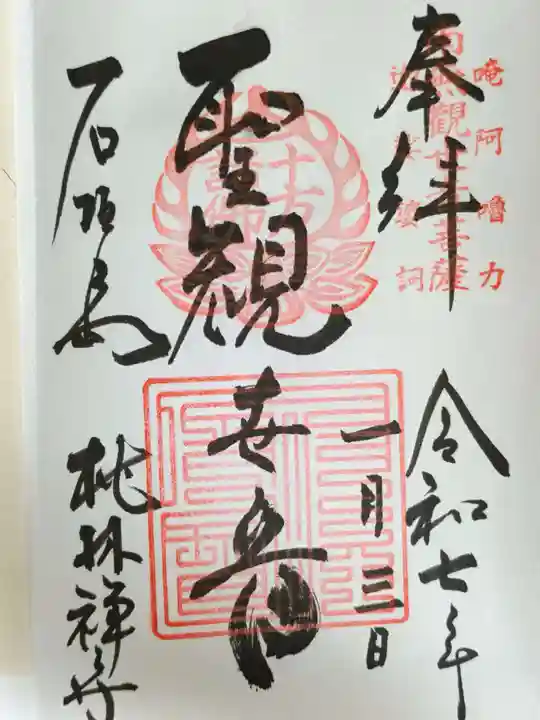 奉拝
唵阿嚕力
南無觀世音菩薩
令和七年
一月三日
聖観世音
石垣島
桃林禅寺